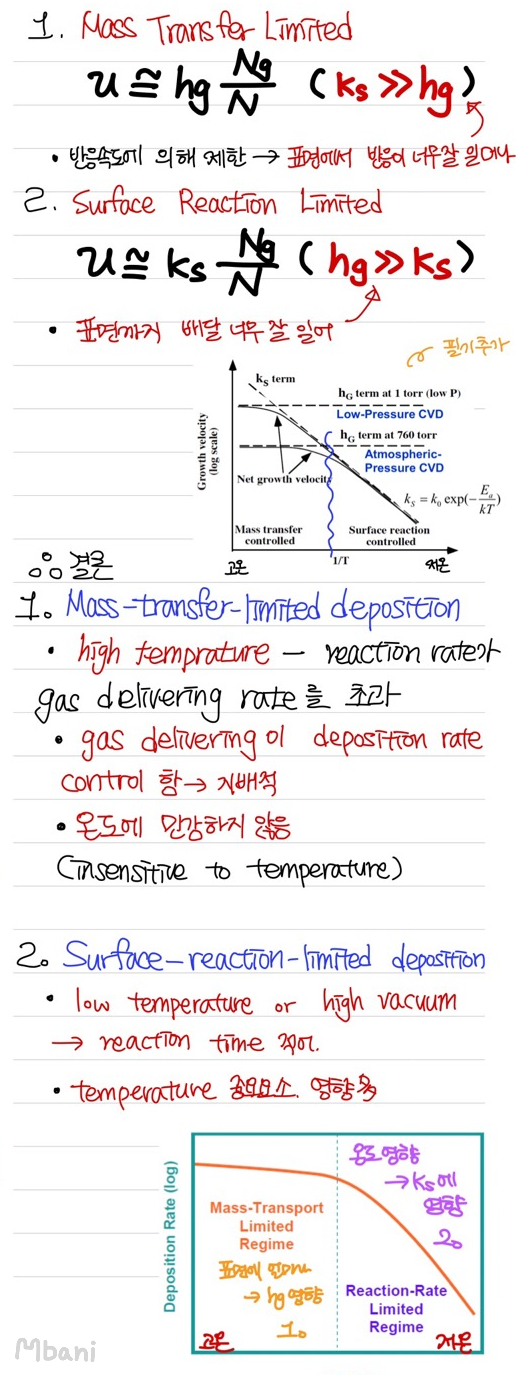 1. Mass Transfer Limited
u ≅ hg Ng/N (ks ≫ hg)
• 반응속도에 의해 제한 → 표면에서 반응이 너무잘 일어나
2. Surface Reaction Limited
u ≅ ks Ng/N (hg ≫ ks)
• 표면까지 배달 너무 잘 일어
필기추가
kS term
hG term at 1 torr (low P)
Low-Pressure CVD
hG term at 760 torr
Atmospheric-
Pressure CVD
Growth velocity
(log scale)
Net growth velocity
kS = k0 exp(-Ea/kT)
Mass transfer
controlled
Surface reaction
controlled
고온
1/T
저온
∴ 결론
1. Mass-transfer-limited deposition
• high temprature — reaction rate가
gas delivering rate를 초과
• gas delivering이 deposition rate
control 함 → 지배적
• 온도에 민감하지 않음
(insensitive to temperature)
2. Surface-reaction-limited deposition
• low temperature or high vacuum
→ reaction time 적어.
• temperature 중요요소. 영향
Deposition Rate (log)
온도영향
→ ks에
영향
2.
Mass-Transport
Limited
Regime
표면에
→ hg 영향
1.
Reaction-Rate
Limited
Regime
고온
저온
Mbani